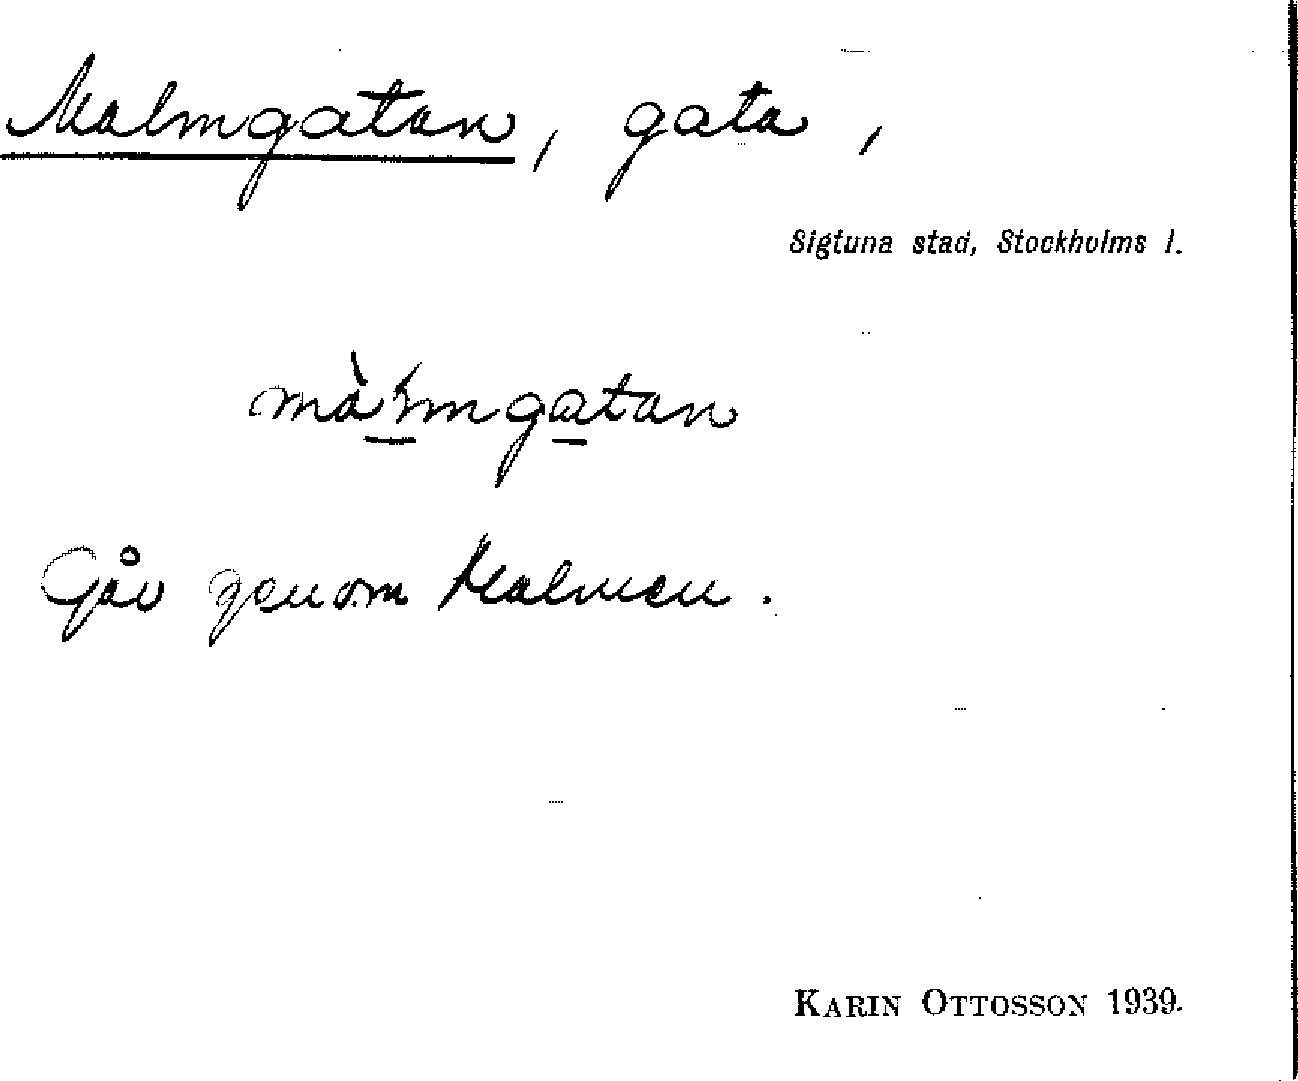 Malmgatan, gata,
Sigtuna stad, Stockholms l.
Går genom Malmen.
KARIN OTTOSSON 1939.